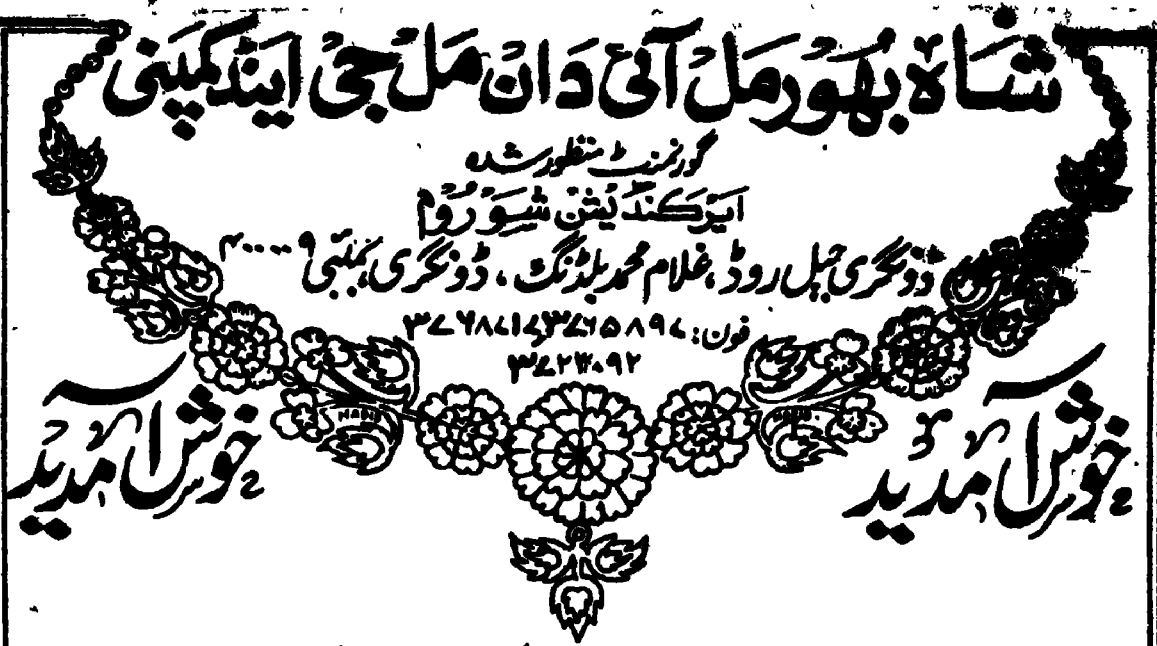 شاہ بھورمل آئی دان مل جی اینڈ کمپنی
گورنمنٹ منظور شدہ
ایرکنڈیشن شو روم
ڈونگری جیل روڈ، غلام محمد بلڈنگ، ڈونگری، بمبئی ۴۰۰۰۰۹
فون:
۳۷۲۳۰۹۲
خوش آمدید
خوش آمدید